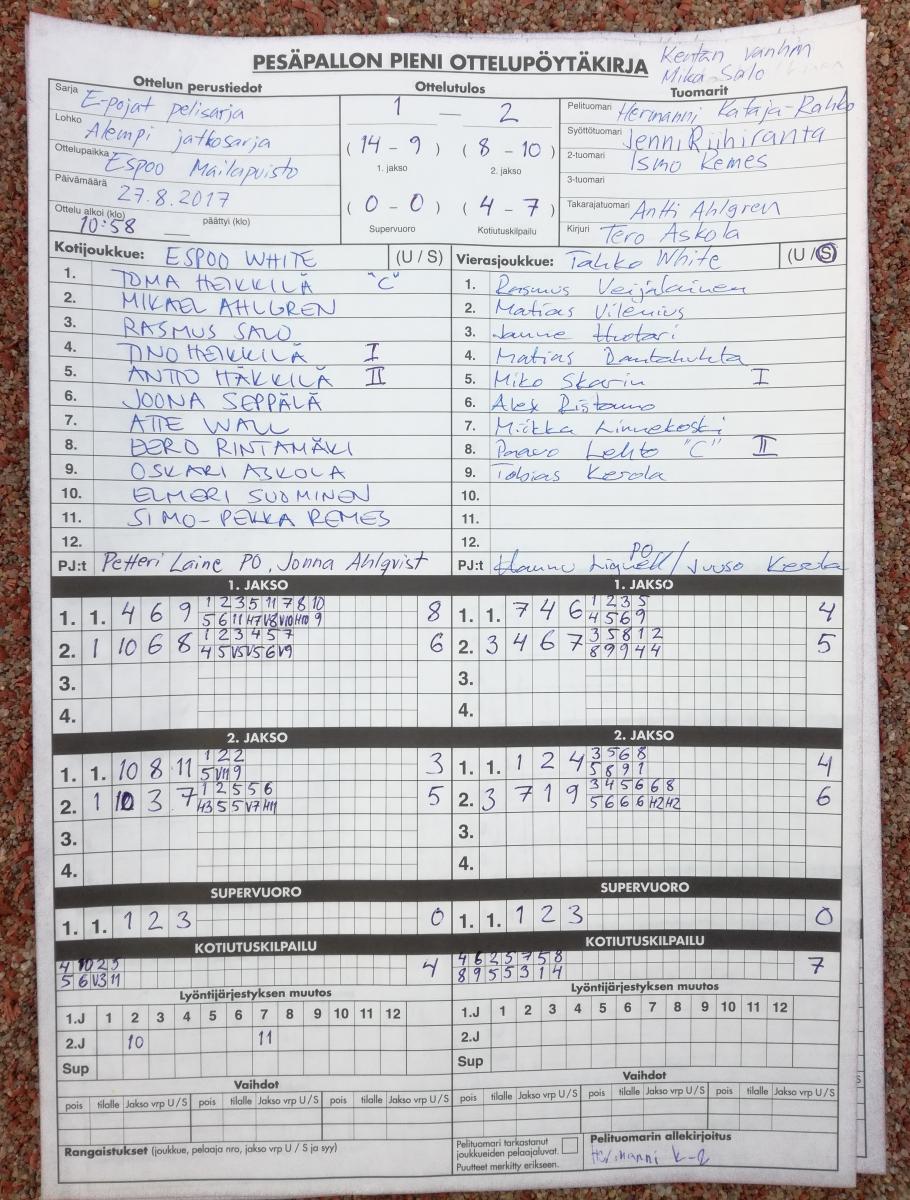 PESÄPALLON PIENI OTTELUPÖYTÄKIRJA
Kentän vanhin
Mika Salo
Ottelun perustiedot
Sarja E-pojat pelisarja
Lohko Alempi jatkosarja
Ottelupaikka Espoo Mailapuisto
Päivämäärä 27.8.2017
Ottelu alkoi (klo) 10:58 päättyi (klo)
Ottelutulos
1 — 2
(14 - 9) (8 - 10)
1. jakso 2. jakso
(0 - 0) (4 - 7)
Supervuoro Kotiutuskilpailu
Tuomarit
Pelituomari Hermanni Kataja-Rahko
Syöttötuomari Jenni Riihiranta
2-tuomari Ismo Remes
3-tuomari
Takarajatuomari Antti Ahlgren
Kirjuri Tero Askola
Kotijoukkue: ESPOO WHITE (U / S)
1. TOMA HEIKKILÄ "C"
2. MIKAEL AHLGREN
3. RASMUS SALO
4. TINO HEIKKILÄ I
5. ANTTO HÄKKILÄ II
6. JOONA SEPPÄLÄ
7. ATTE WALL
8. EERO RINTAMÄKI
9. OSKARI ASKOLA
10. ELMERI SUOMINEN
11. SIMO-PEKKA REMES
12.
PJ:t Petteri Laine PO, Jonna Ahlqvist
Vierasjoukkue: Tahko White (U / S)
1. Rasmus Veijalainen
2. Matias Vilenius
3. Janne Huotari
4. Matias Rautahuhta
5. Miko Skarin I
6. Alex Ristamo
7. Miikka Linnekoski
8. Paavo Lehto "C" II
9. Tobias Kerola
10.
11.
12.
PJ:t Hannu PO / Juuso Kerola
1. JAKSO
1. 1. 4 6 9 1 2 3 5 11 7 8 10 8
5 6 11 H7 V8 V10 H10 9
2. 1 10 6 8 1 2 3 4 5 7 6
4 5 V5 V5 6 V9
3.
4.
1. JAKSO
1. 1. 7 4 6 1 2 3 5 4
4 5 6 9
2. 3 4 6 7 3 5 8 1 2 5
8 9 9 4 4
3.
4.
2. JAKSO
1. 1. 10 8 11 1 2 2 3
5 V11 9
2. 1 10 3 7 1 2 5 5 6 5
H3 5 5 V7 H11
3.
4.
2. JAKSO
1. 1. 1 2 4 3 5 6 8 4
5 8 9 1
2. 3 7 1 9 3 4 5 6 6 8 6
5 6 6 6 H2 H2
3.
4.
SUPERVUORO
1. 1. 1 2 3 0
SUPERVUORO
1. 1. 1 2 3 0
KOTIUTUSKILPAILU
4 10 2 3 4
5 6 V3 11
KOTIUTUSKILPAILU
4 6 2 5 7 5 8 7
8 9 5 5 3 1 4
Lyöntijärjestyksen muutos
1.J 1 2 3 4 5 6 7 8 9 10 11 12
2.J 10 11
Sup
Lyöntijärjestyksen muutos
1.J 1 2 3 4 5 6 7 8 9 10 11 12
2.J
Sup
Vaihdot
pois tilalle Jakso vrp U / S pois tilalle Jakso vrp U / S pois tilalle Jakso vrp U / S
Vaihdot
pois tilalle Jakso vrp U / S pois tilalle Jakso vrp U / S pois tilalle Jakso vrp U / S
Rangaistukset (joukkue, pelaaja nro, jakso vrp U / S ja syy)
Pelituomari tarkastanut
joukkueiden pelaajaluvat.
Puutteet merkitty erikseen.
Pelituomarin allekirjoitus
Hermanni K-R